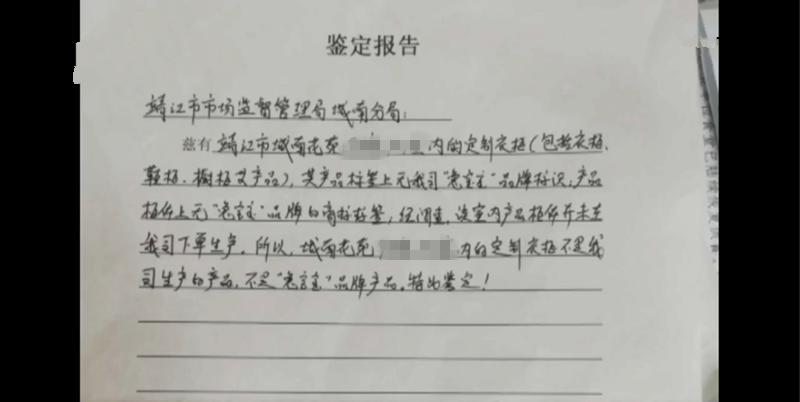 鉴定报告
靖江市市场监督管理局城南分局:
兹有 靖江市城南花苑 内的定制衣柜(包括衣柜、
鞋柜、橱柜艾产品),其产品标签上无我司"老宝宝"品牌标识,产品
柜体上无"老宝宝"品牌的商标标签,经调查,该室内产品柜体并未在
我司下单生产。所以,城南花苑, 内的定制衣柜不是我
司生产的产品,不是"老宝宝"品牌产品。特此鉴定!